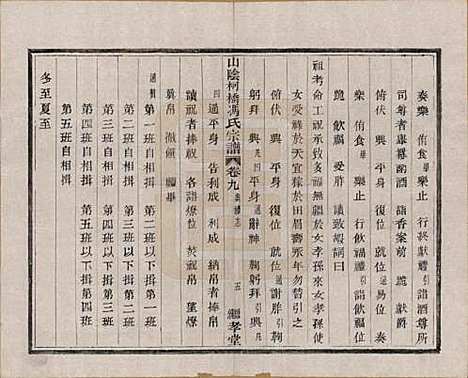 奏樂 侑食畢 樂止 行終獻禮引 詣酒尊所
司尊者舉冪酌酒 詣香案前 跪 獻爵
俯伏 興 平身 復位 就位通 奏
樂 侑食畢 樂止 飲福禮引 詣飲福位
跪 飲福 受胙 讀致嘏詞曰
祖考命工祝承致多福無疆於女孝孫來女孝孫使
女受祿於天宜稼於田眉壽永年勿替引之
俯伏 興 平身 復位 就位通 謝胙引 鞠
躬拜 興 凡四 平身通 辭神 鞠躬拜引 興凡
四 通平身 告利成 利成 納帛者捧帛
讀祝者捧祝 各詣燎位 焚祝帛 望燎
數帛 徹饌 禮畢
山陰柯橋馮氏宗譜 卷九 典禮志 五 繼孝堂
通 團揖
第一班自相揖 第二班以下揖第一班
第二班自相揖 第三班以下揖第二班
第三班自相揖 第四班以下揖第三班
第四班自相揖 第五班以下揖第四班
第五班自相揖
冬至夏至